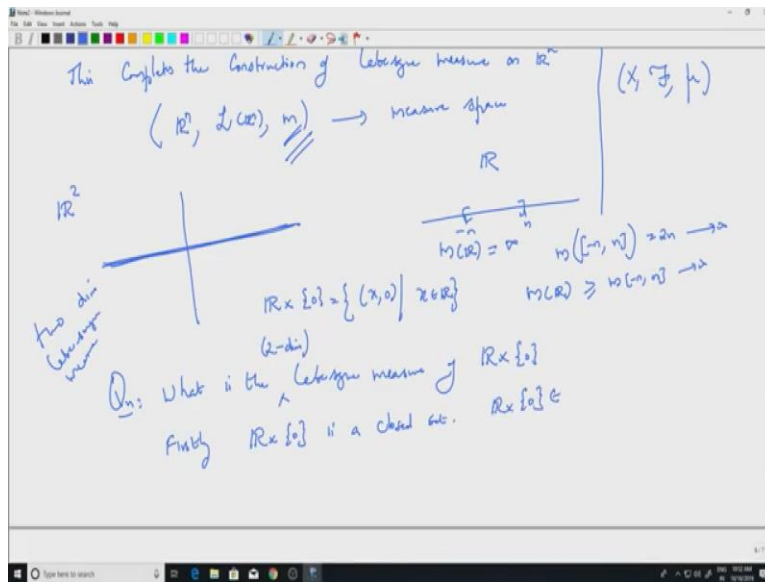 Note2 - Windows Journal
File Edit View Insert Actions Tools Help
This completes the Construction of Lebesgue measure on ℝⁿ
(ℝⁿ, L(ℝⁿ), m) → measure space
(X, F, μ)
ℝ²
ℝ
-n n
m(ℝ) = ∞ m([-n, n]) = 2n → ∞
m(ℝ) ≥ m[-n, n] → ∞
two dim
Lebesgue
measure
ℝ x {0} = { (x,0) | x∈ℝ }
(2-dim)
Qn: What is the ^ Lebesgue measure of ℝ x {0}
Firstly ℝ x {0} is a closed set. ℝ x {0} ∈
Type here to search
ENG 10:12 AM
IN 10/16/2019